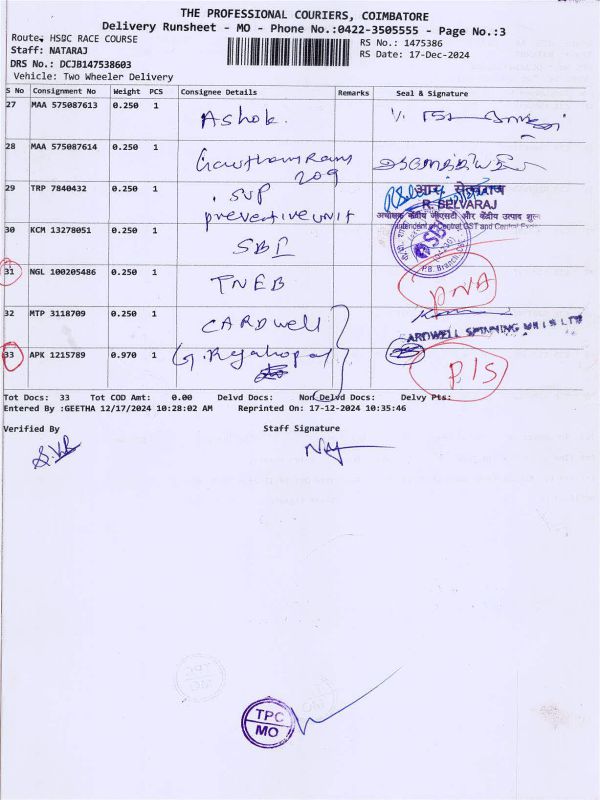 THE PROFESSIONAL COURIERS, COIMBATORE
Delivery Runsheet - MO - Phone No.:0422-3505555 - Page No.:3
Route: HSBC RACE COURSE
RS No.: 1475386
Staff: NATARAJ
RS Date: 17-Dec-2024
DRS No.: DCJB147538603
Vehicle: Two Wheeler Delivery
S No Consignment No Weight PCS Consignee Details Remarks Seal & Signature
27 MAA 575087613 0.250 1 Ashok.
28 MAA 575087614 0.250 1 Gowtham Ram
209
29 TRP 7840432 0.250 1 . SUP
preventive unit
R. SELVARAJ
30 KCM 13278051 0.250 1 SBI
SBI
P.B. Branch
31 NGL 100205486 0.250 1 TNEB DNA
32 MTP 3118709 0.250 1 CARDwell
CARDWELL SPINNING MILLS LTD
33 APK 1215789 0.970 1 G. Rajagopal P/S
Tot Docs: 33 Tot COD Amt: 0.00 Delvd Docs: Non Delvd Docs: Delvy Pts:
Entered By :GEETHA 12/17/2024 10:28:02 AM Reprinted On: 17-12-2024 10:35:46
Verified By Staff Signature
TPC
MO